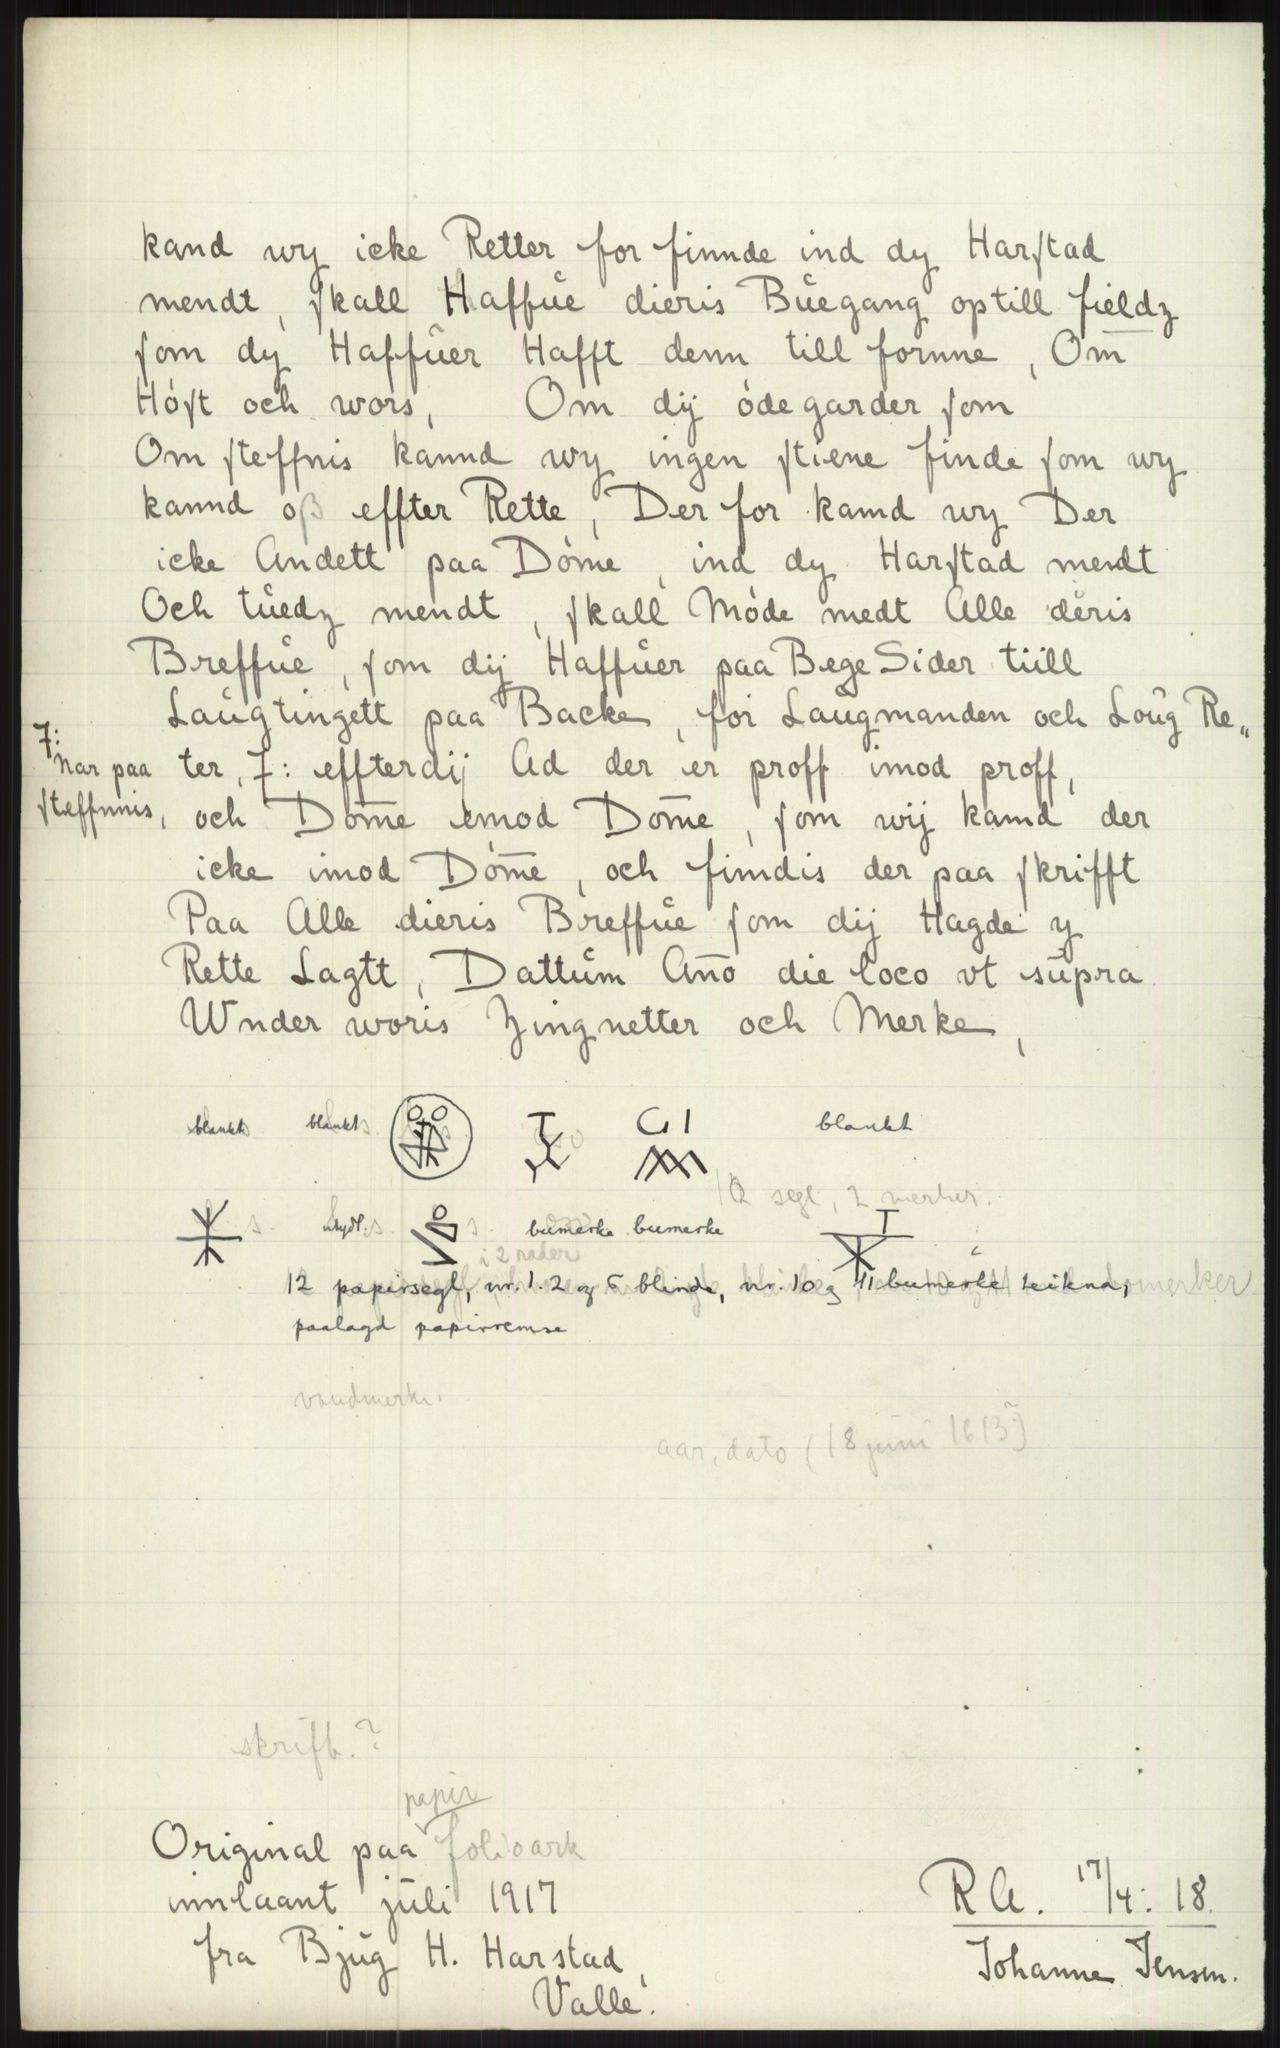 kand wy icke Retter for finnde ind dy Harſtad
mendt, ſkall Haffŭe dieris Bŭegang optill fieldz
ſom dy Haffŭer Hafft denn till fornne, Om̅
Hóſt och wors, Om dÿ ódegarder ſom
Om ſteffnis kannd wy ingen ſtiene finde ſom wy
kannd oß effter Rette, Der for kand wy Der
icke Andett paa Dóme, ind dy Harſtad mendt
Och tŭedz mendt, ſkall Móde medt Alle dĕris
Breffŭe, ſom dÿ Haffŭer paa Bege Sider tiill
Laŭgtingett paa Backe, for Laŭgmanden och Loŭg Re„
ter, 7: effterdij Ad der er proff imod proff,
7: Nar paa
ſteffnnis,
och Dom̅e emod Dom̅e, ſom wij kand der
icke imod Dóm̅e, och findis der paa ſkrifft
Paa Alle dieris Breffŭe ſom dij Hagde y
Rette Lagtt, Dattŭm An̅o die loco vt sŭpra
Wnder woris Zingnetter och Merke,
blankt blankt blankt
T G I
10 segl, 2 merker.
utydl. s. s. bumerke bumerke T
i 2 rader
12 papirsegl, nr. 1. 2 og 6 blinde, nr. 10 og 11 bumerke teikna,
paalagd papirremse
vandmerke.
aar, dato (18 juni 1613?)
skrift.?
papir
Original paa folioark
innlaant jŭli 1917
fra Bjŭg H. Harstad,
Valle.
R A. 17/4: 18.
Johanne Jensen.